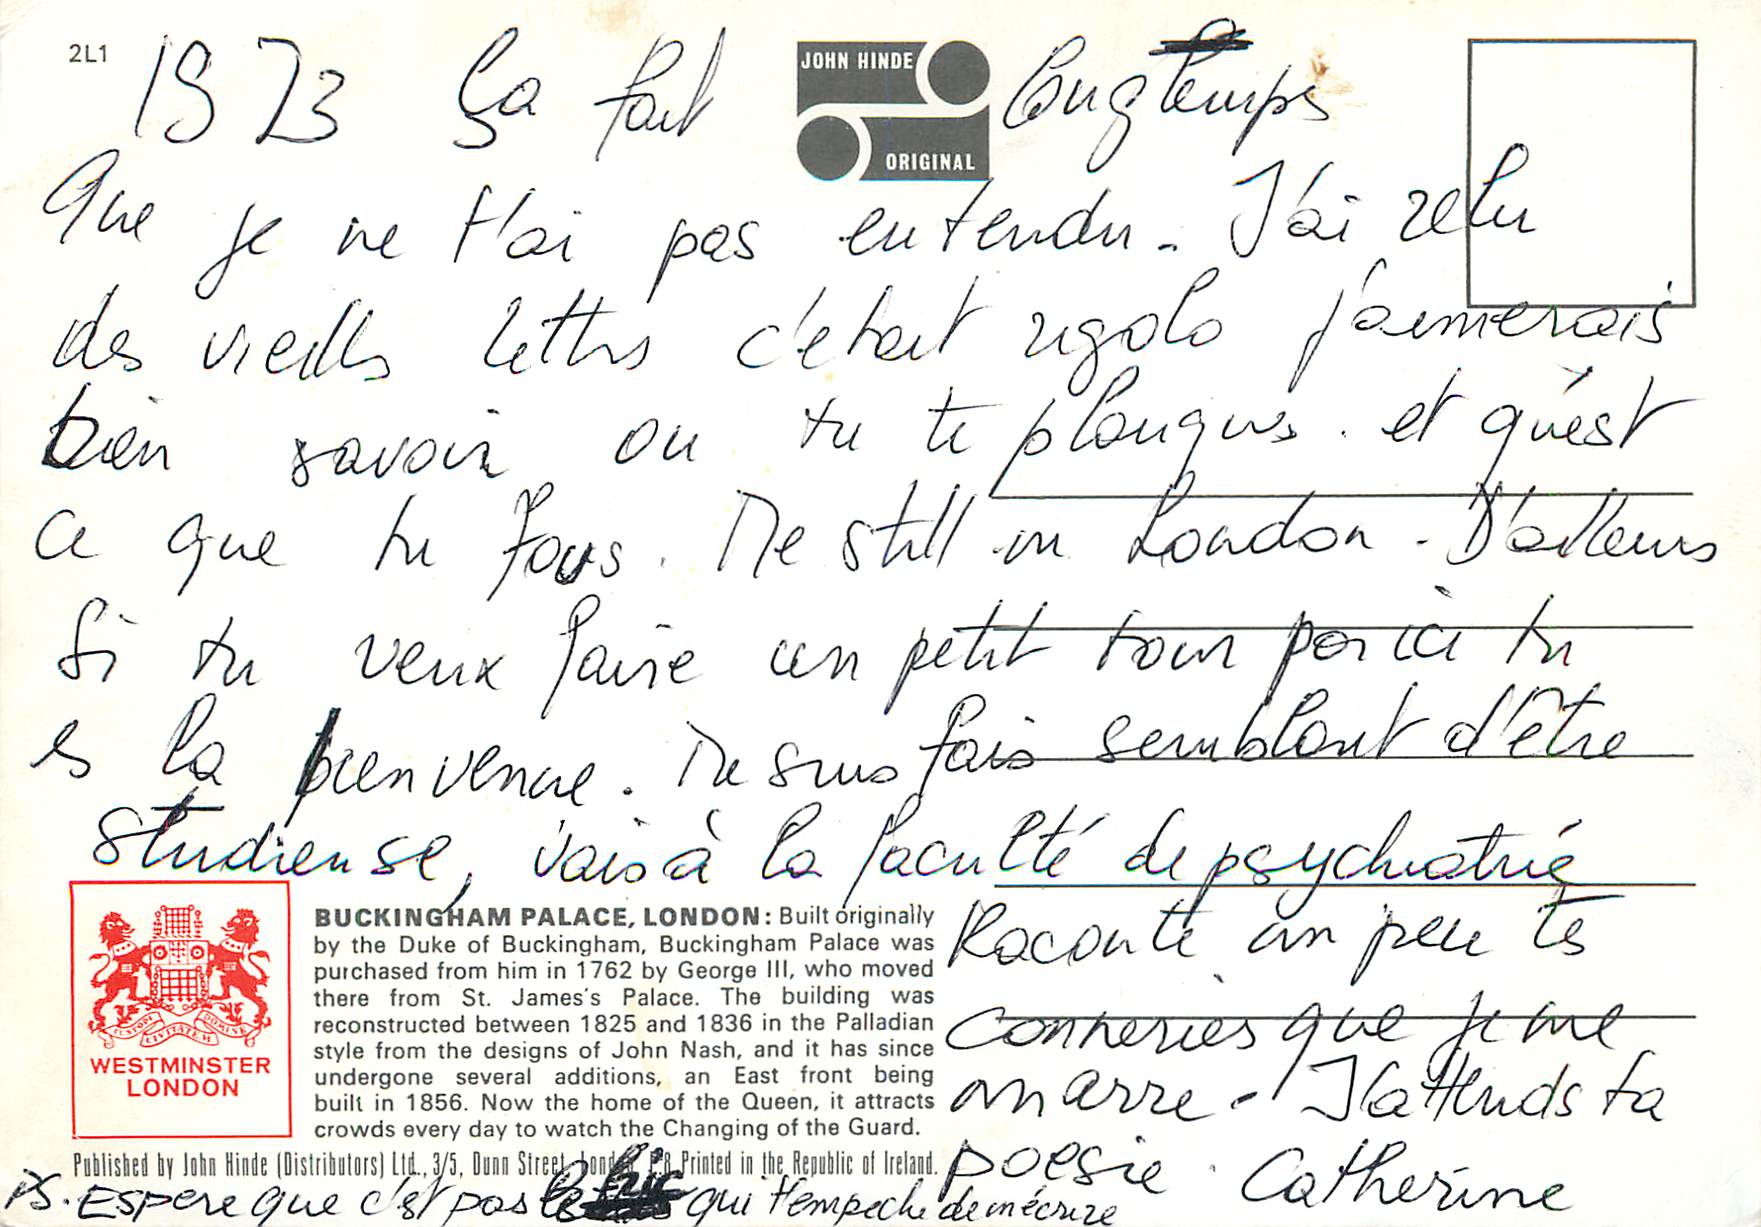 2L1
1973 ça fait longtemps
JOHN HINDE
ORIGINAL
Que je ne t'ai pas entendu. J'ai relu
des vieilles lettres c'etait rigolo j'aimerais
bien savoir ou tu te planques. et qu'est
ce que tu fous. Me still in London. D'ailleurs
Si tu veux faire un petit tour par ici tu
es la bienvenue. Me suis fais semblant d'être
studieuse, vais à la faculté de psychiatrie
Raconte un peu tes
conneries que je me
marre. J'attends ta
poesie. Catherine
PS. Espere que c'est pas le fric qui t'empeche de m'écrire
WESTMINSTER
LONDON
BUCKINGHAM PALACE, LONDON: Built originally
by the Duke of Buckingham, Buckingham Palace was
purchased from him in 1762 by George III, who moved
there from St. James's Palace. The building was
reconstructed between 1825 and 1836 in the Palladian
style from the designs of John Nash, and it has since
undergone several additions, an East front being
built in 1856. Now the home of the Queen, it attracts
crowds every day to watch the Changing of the Guard.
Published by John Hinde (Distributors) Ltd., 3/5, Dunn Street, London, E.8. Printed in the Republic of Ireland.